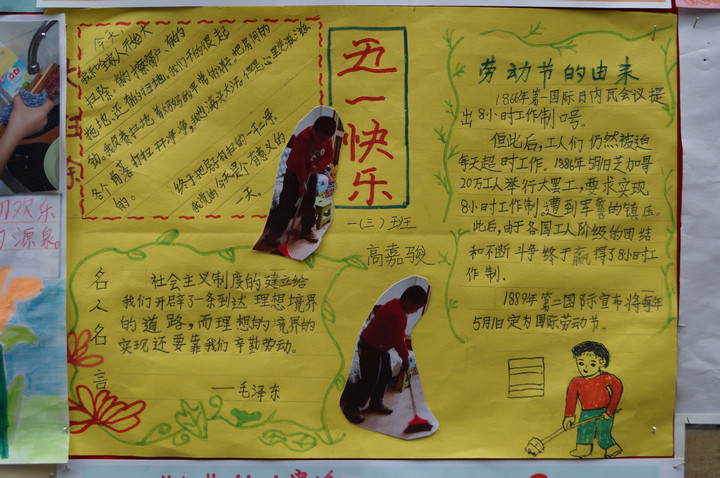 今天，
我和家人开始大
扫除。
拖地，还有的扫地。我们干的很起
劲。我负责扫地，
各个角落都扫干净，
的。
终于把房子打扫的一干二净。
我觉得今天是个有意义的
一天。
五一快乐
一(三)班
高嘉骏
劳动节的由来
1866年第一国际日内瓦会议提
出8小时工作制口号。
但此后，工人们仍然被迫
每天超时工作。1886年5月1日芝加哥
20万工人举行大罢工，要求实现
8小时工作制。遭到军警的镇压。
此后，由于各国工人阶级的团结
和不断斗争终于赢得了8小时工
作制。
1889年第二国际宣布将每年
5月1日定为国际劳动节。
名人名言
社会主义制度的建立给
我们开辟了条到达理想境界
的道路，而理想的境界的
实现还要靠我们辛勤劳动。
——毛泽东
欢乐
源泉。